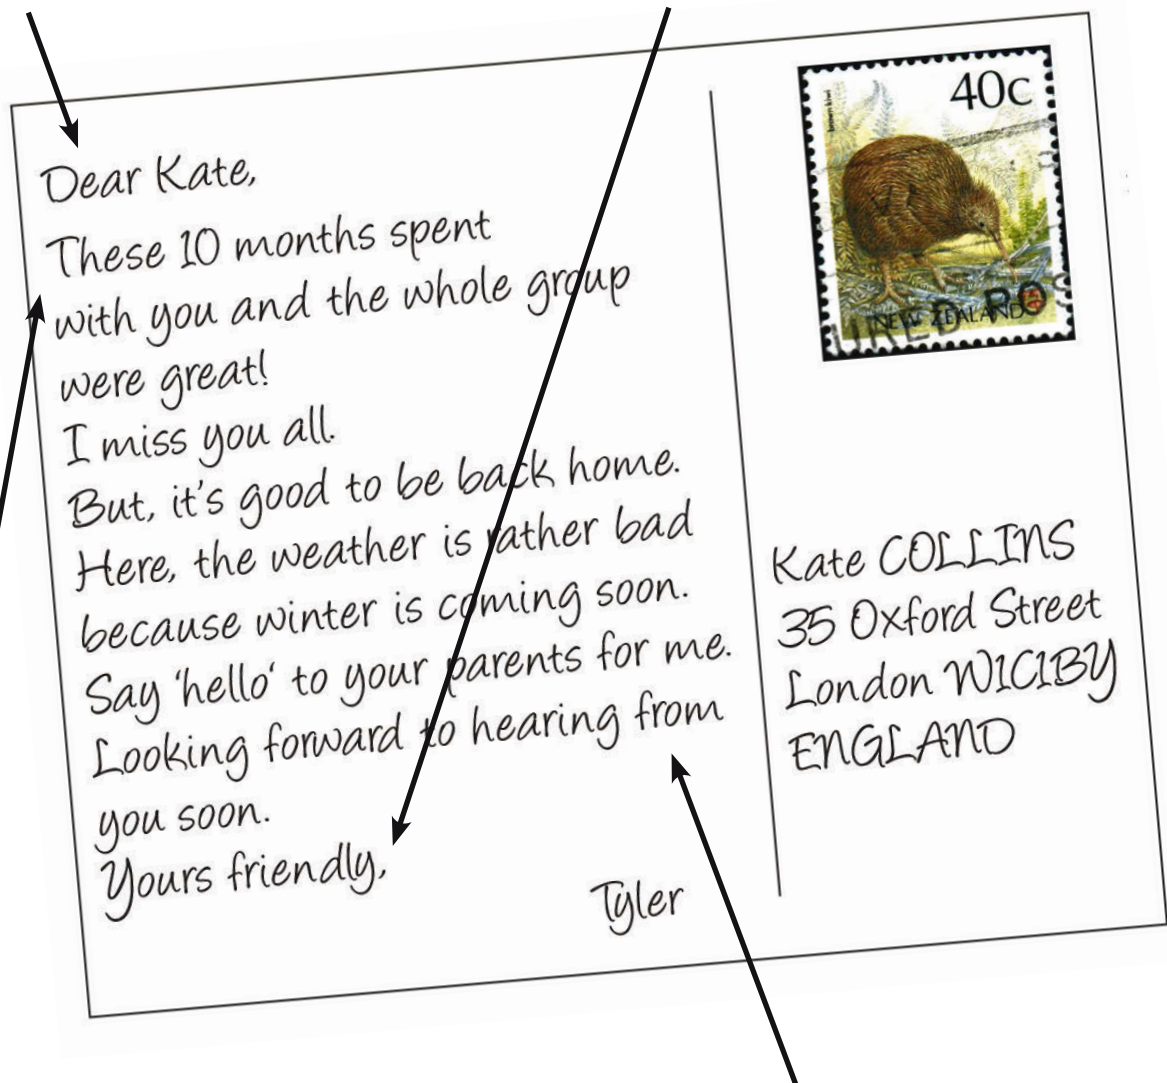 Dear Kate,
These 10 months spent
with you and the whole group
were great!
I miss you all.
But, it's good to be back home.
Here, the weather is rather bad
because winter is coming soon.
Say 'hello' to your parents for me.
Looking forward to hearing from
you soon.
Yours friendly,
Tyler
40c
brown kiwi
NEW ZEALAND
Kate COLLINS
35 Oxford Street
London W1C1BY
ENGLAND